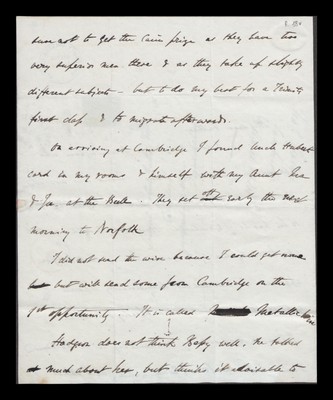 sure not to get the Caius prize as they have two
very superior men there & as they take up slightly
different subjects – but to do my best for a Trinity
first class & to migrate afterwards.
On arriving at Cambridge I found Uncle
card in my rooms & himself with my Aunt
& at the Bull. They set off early the next
morning to Norfolk
I did not send the wire because I could get none
but will send some from Cambridge on the
1st opportunity. It is called Metallic
Hodgson does not think Bessy well. He talked
much about her, but thinks it advisable to